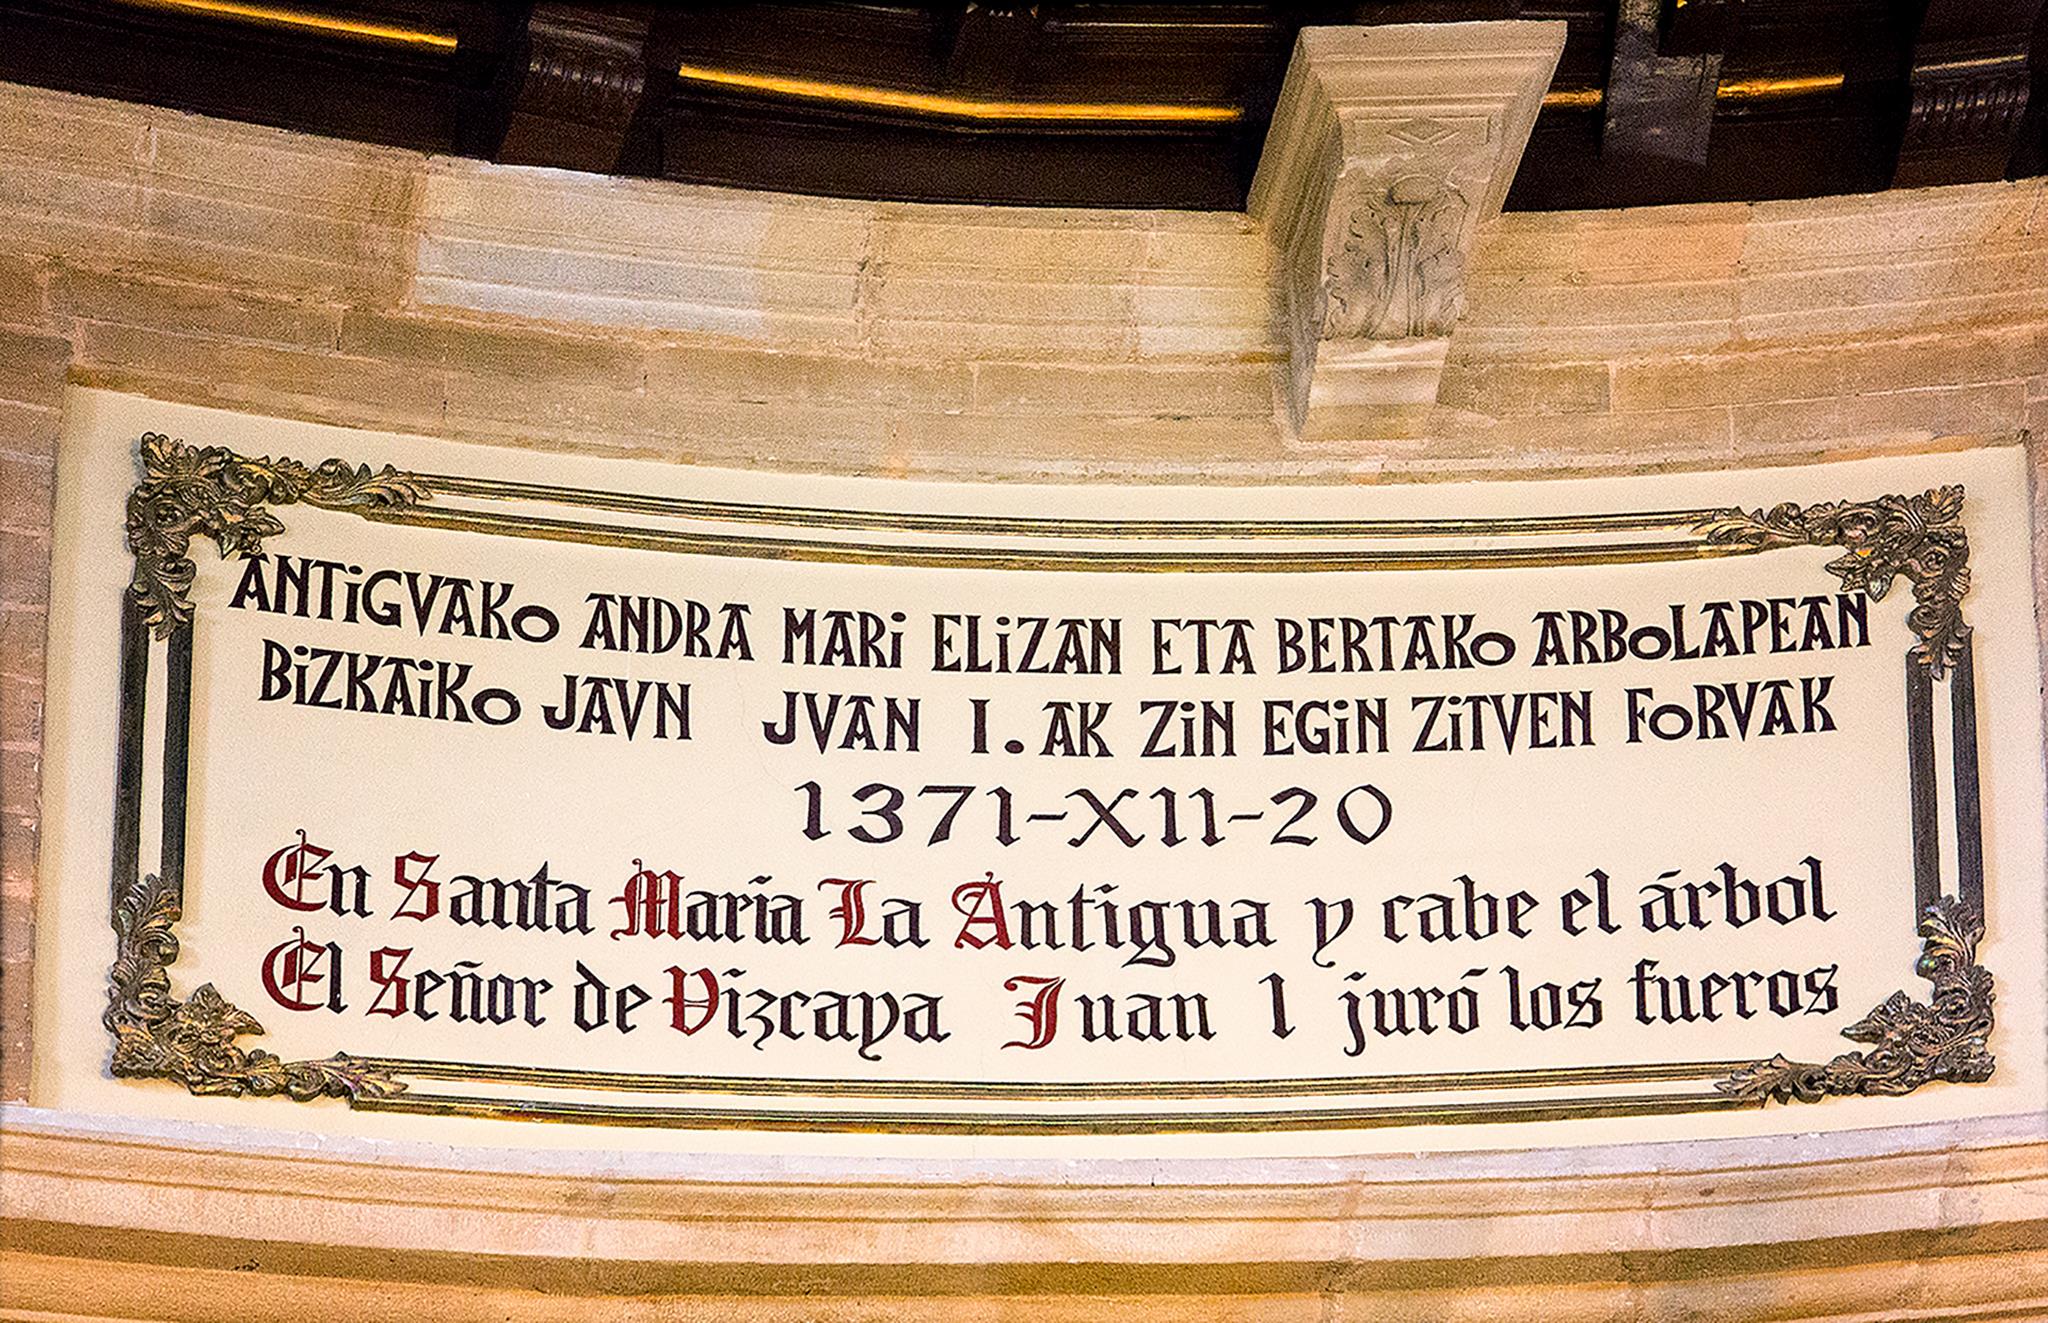 ANTiGVAKo ANDRA MARi ELiZAN ETA BERTAKo ARBoLAPEAN
BiZKAiKo JAVN JVAN I. AK ZiN EGiN ZiTVEN FoRVAK
1371-XII-20
En Santa María La Antigua y cabe el árbol
El Señor de Vizcaya Juan I juró los fueros